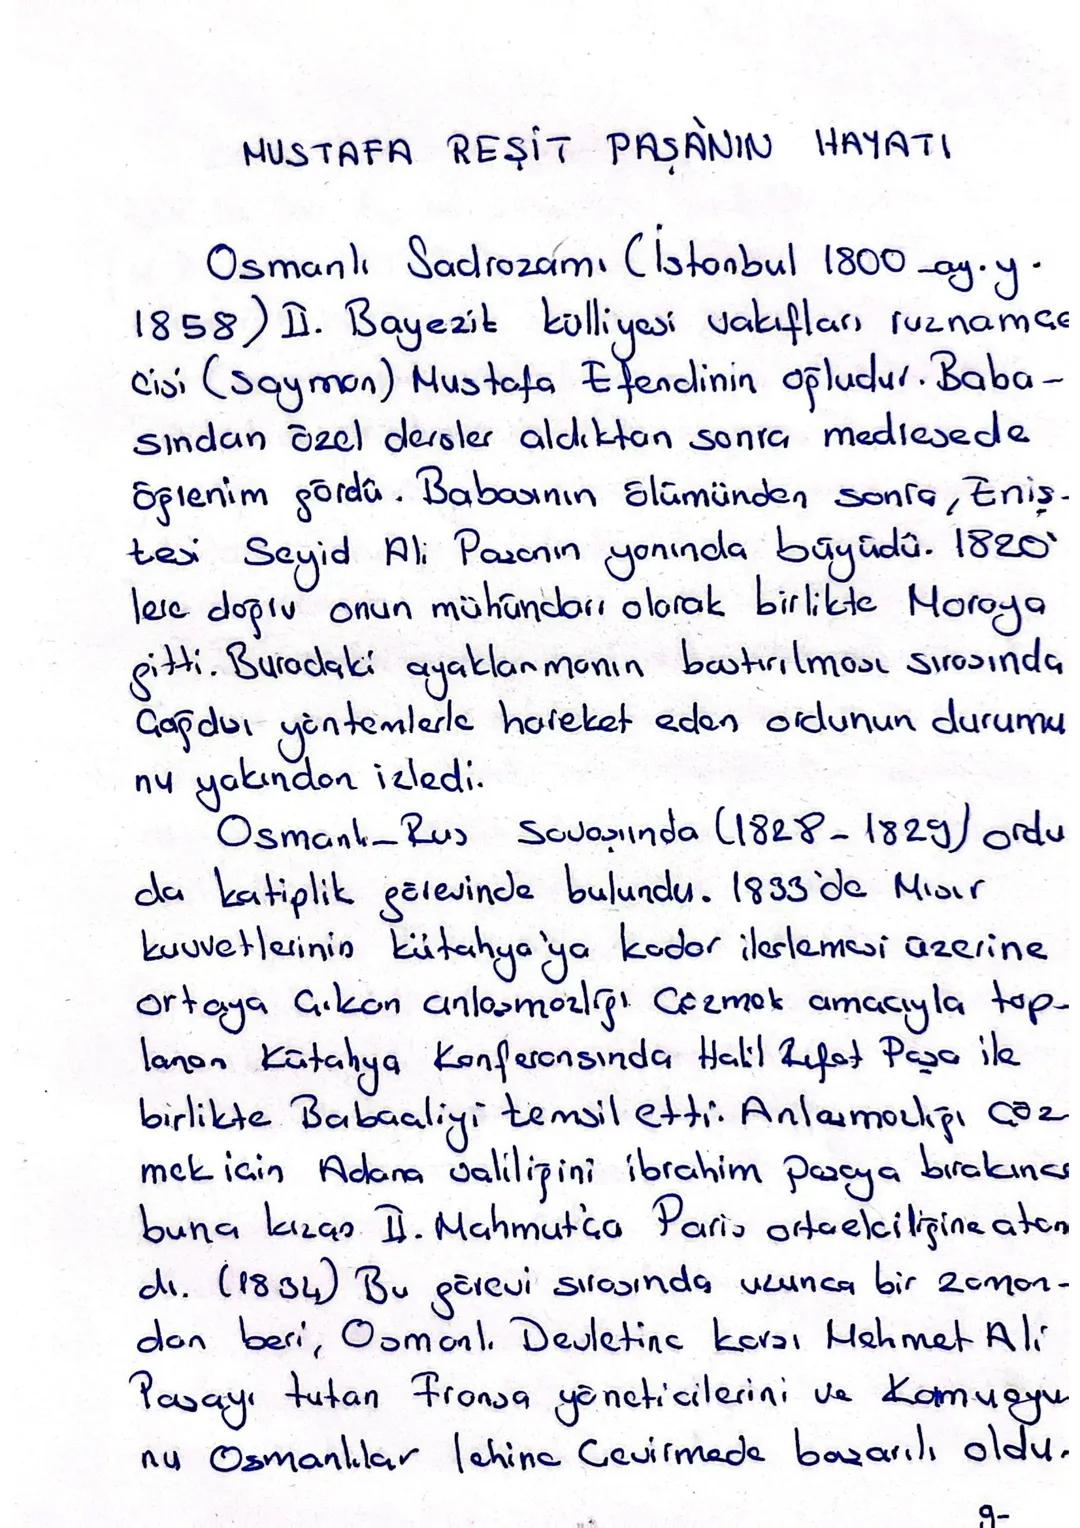 MUSTAFA REŞİT PAŞA'NIN HAYATI
Osmanlı Sadrozamı (İstonbul 1800 _ay.y.
1858) II. Bayezit külliyesi vakıfları ruznamçe
cisi (saymon) Mustafa Efendinin oğludur. Baba-
sından özel dersler aldıktan sonra medresede
öğrenim gördü. Babasının ölümünden sonra, Eniş-
tesi Seyid Ali Paşanın yanında büyüdü. 1820'
lere doğru onun mühündarı olarak birlikte Moraya
gitti. Buradaki ayaklanmanın bastırılması sırasında
Çağdışı yöntemlerle hareket eden ordunun durumu
nu yakından izledi.
Osmanlı_Rus Savaşında (1828-1829) ordu
da katiplik görevinde bulundu. 1833'de Mısır
kuvvetlerinin Kütahya'ya kadar ilerlemesi üzerine
ortaya çıkan anlaşmazlığı Çözmek amacıyla top-
lanan Kütahya Konferansında Halil Rıfat Paşa ile
birlikte Babaaliyi temsil etti. Anlaşmazlığı Çöz
mek için Adana valiliğini ibrahim paşaya bırakınca
buna kızan II. Mahmut'ça Paris ortaelçiliğine atan
dı. (1834) Bu görevi sırasında uzunca bir zaman-
dan beri, Osmanlı Devletine karşı Mehmet Ali
Paşayı tutan Fransa yöneticilerini ve Kamuoyu
nu Osmanlılar lehine Çevirmede başarılı oldu.
9-